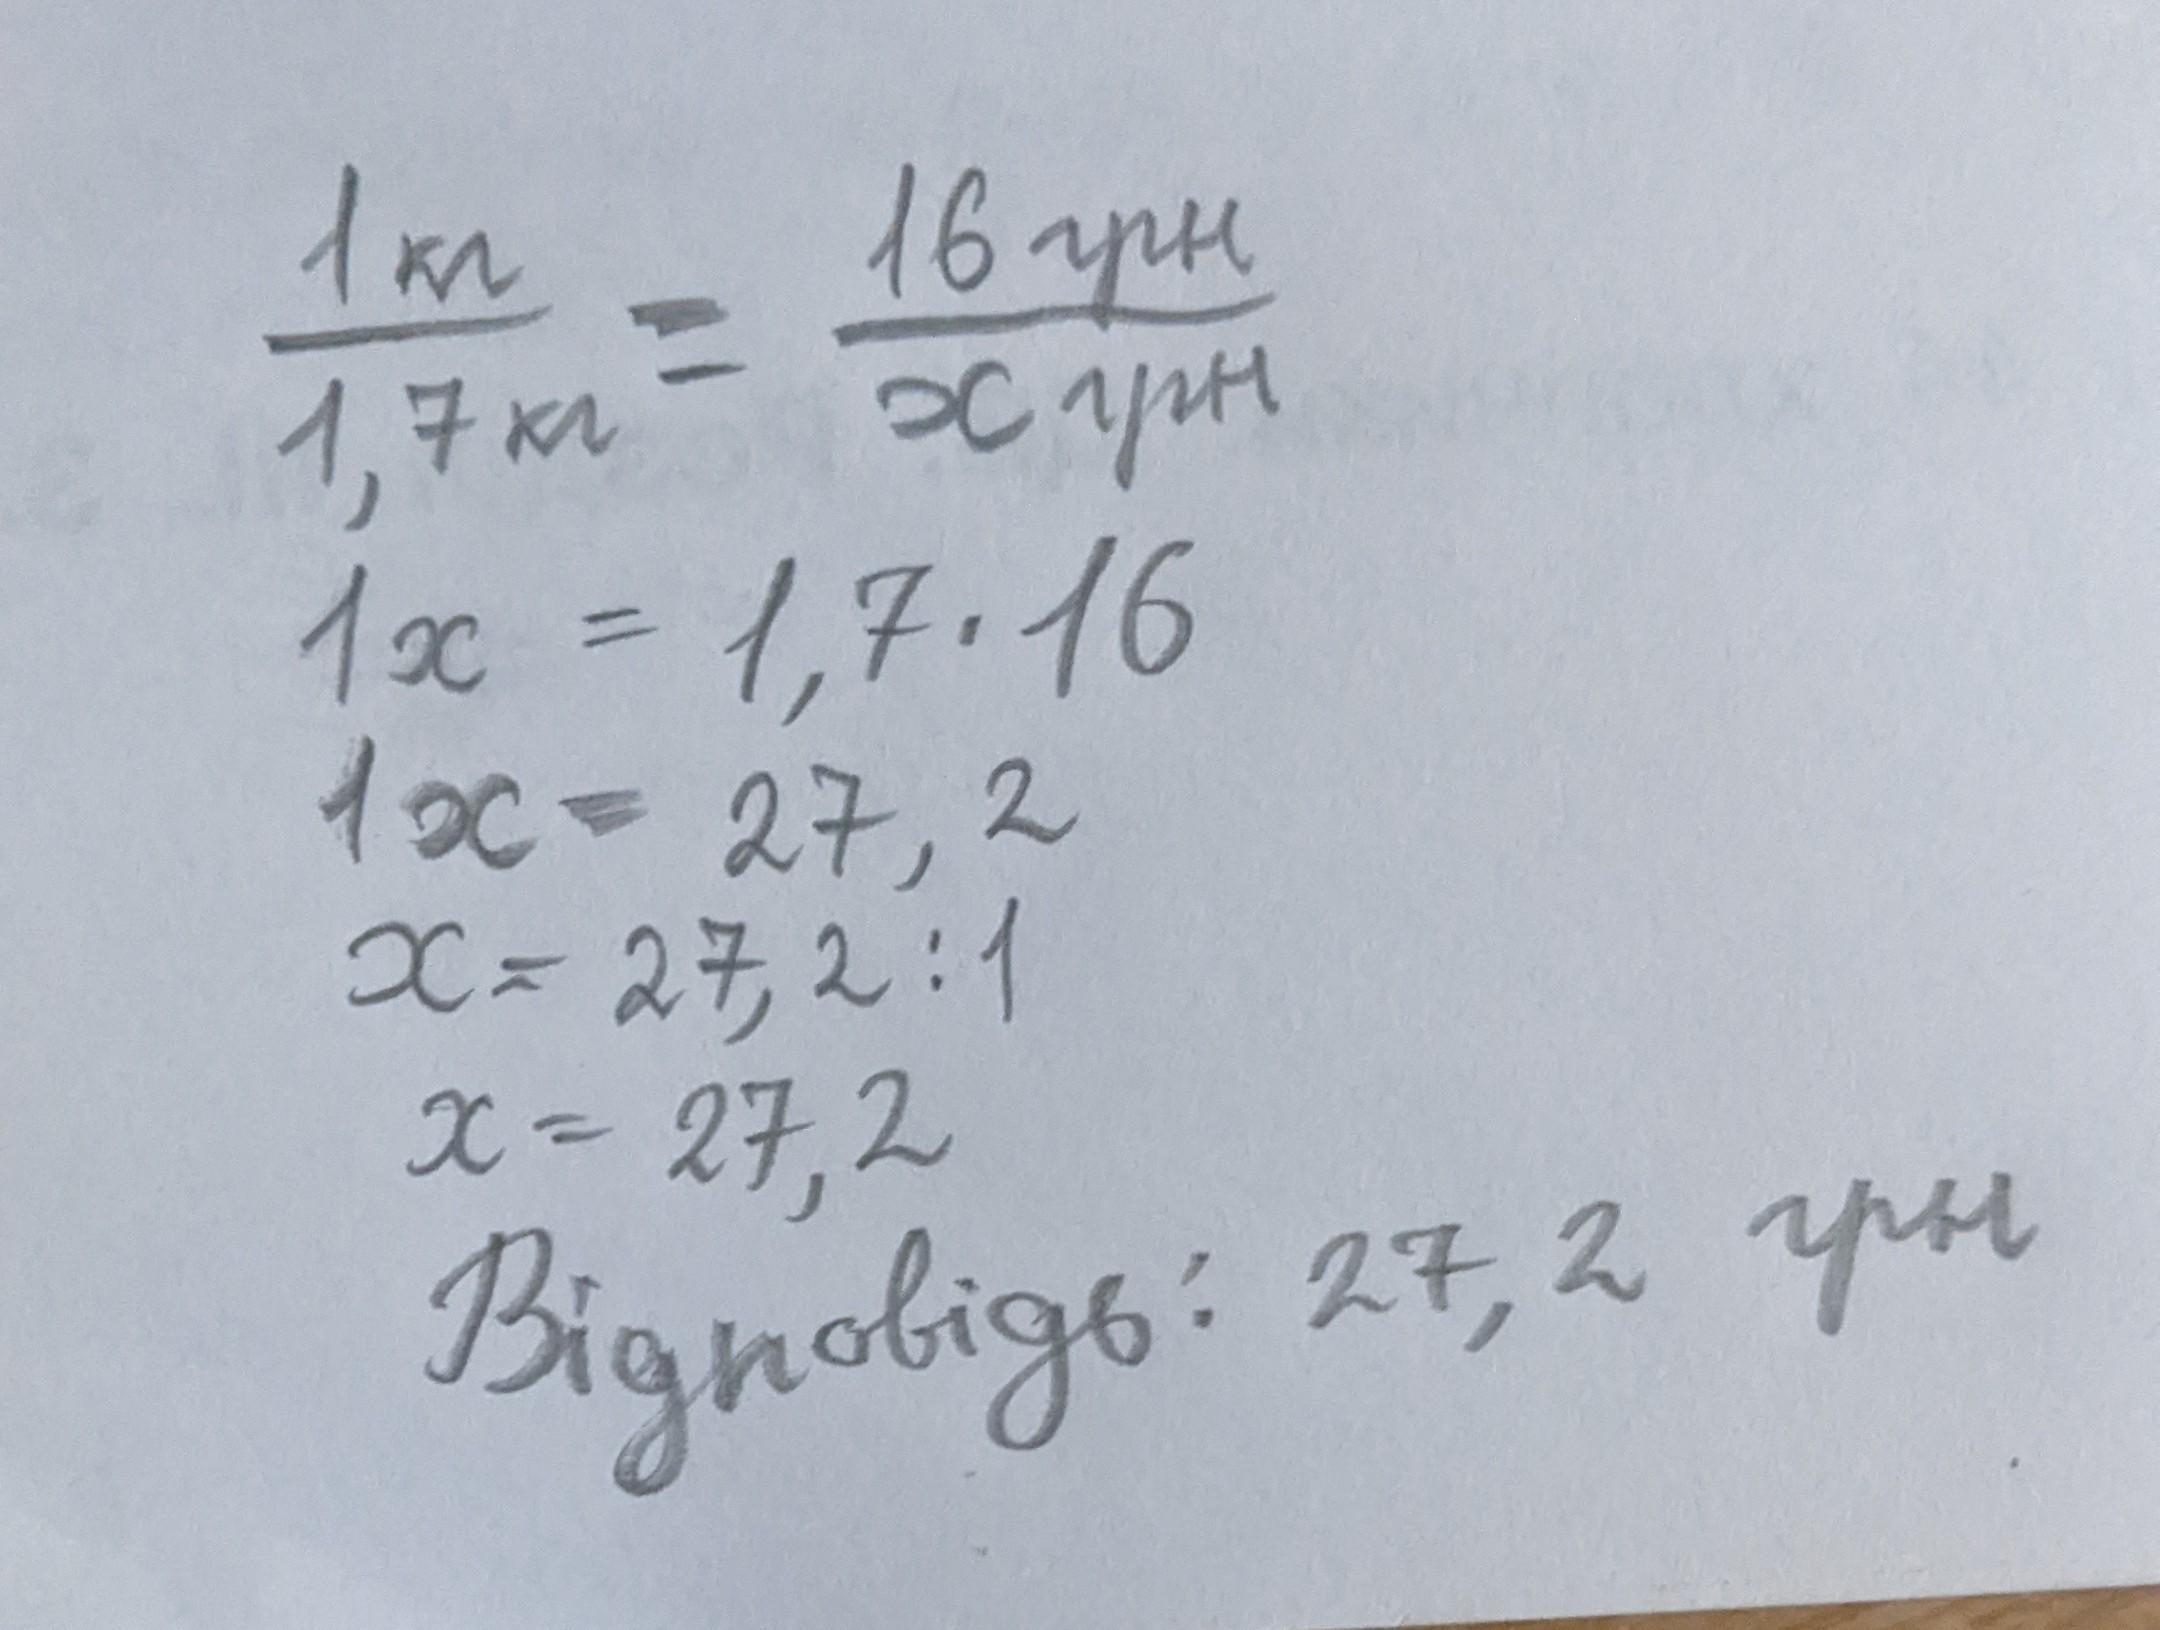 1 кг / 1,7 кг = 16 грн / x грн
1x = 1,7 · 16
1x = 27,2
x = 27,2 : 1
x = 27,2
Відповідь: 27,2 грн